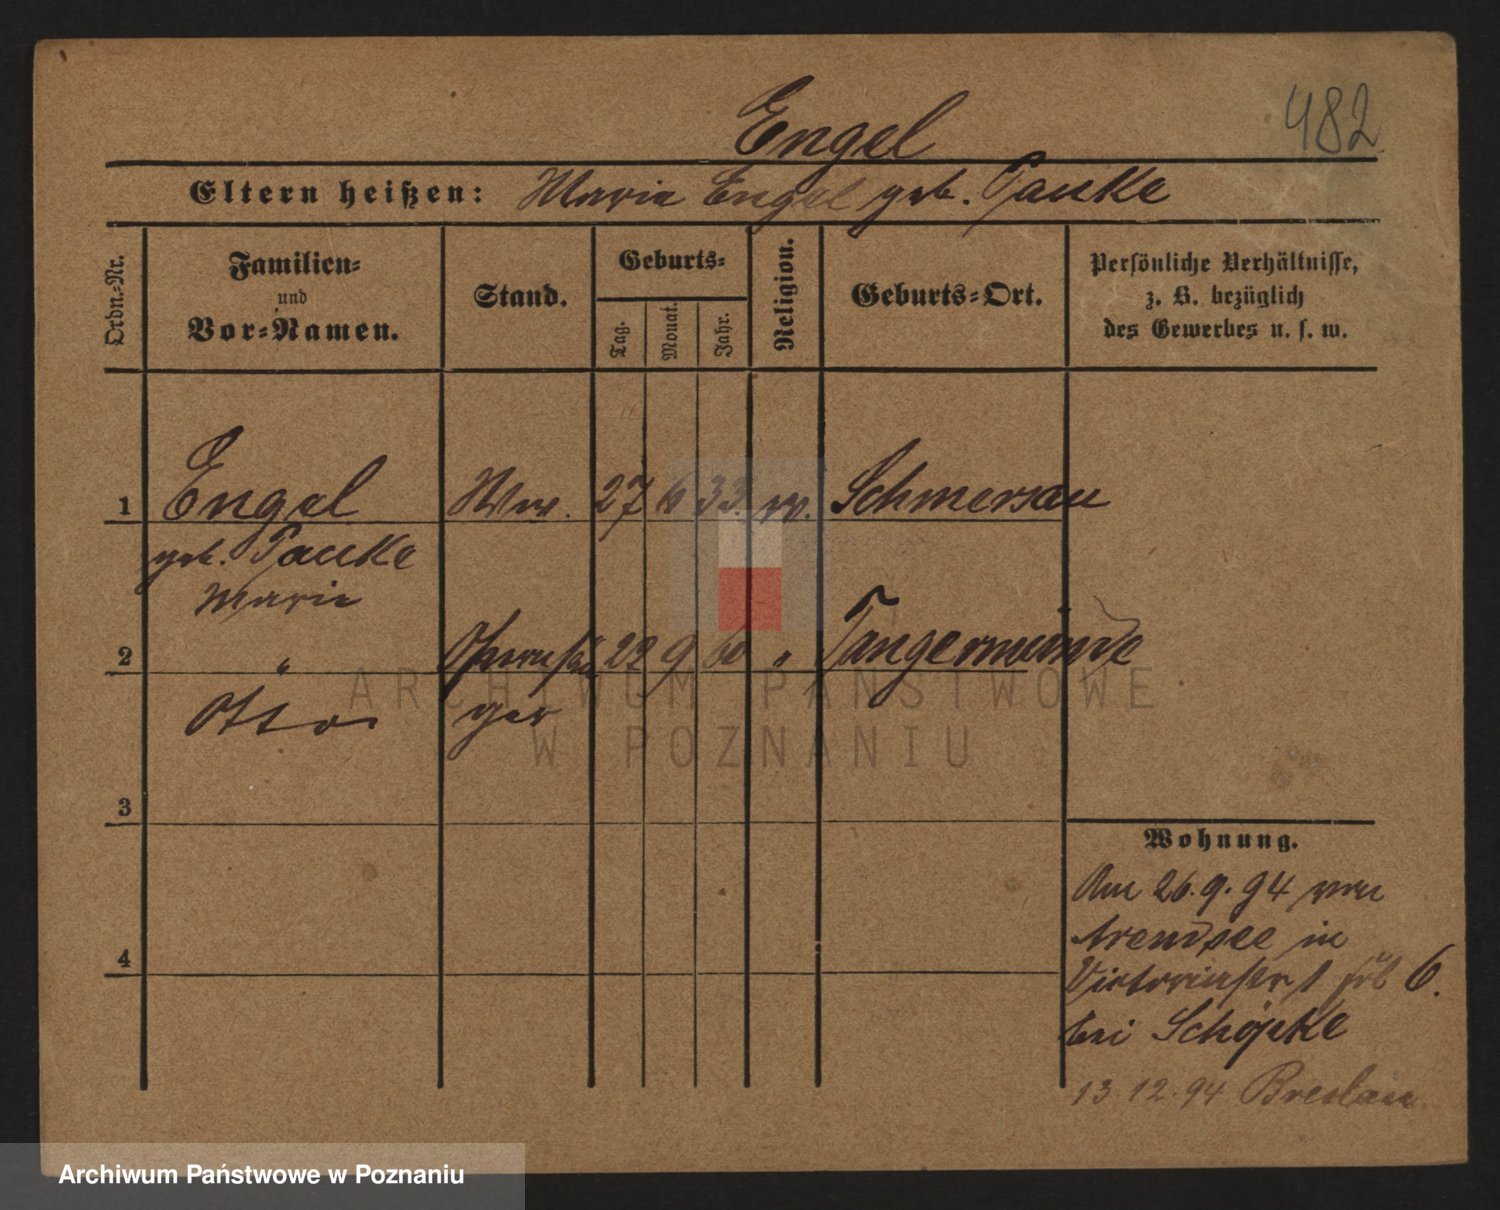 482
Engel
Eltern heißen: Marie Engel geb. Pauke
Ordn.-Nr.
Familien-
und
Vor-Namen.
Stand.
Geburts-
Tag.
Monat.
Jahr.
Religion.
Geburts-Ort.
Persönliche Verhältnisse,
z. B. bezüglich
des Gewerbes u. s. w.
1 Engel Ww. 27 6 33. ev. Schmersau
geb. Pauke
Marie
2 " 22 9 60 " Tangermünde
Otto ger
3
4
Wohnung.
Am 26.9.94 von
Arendsee in
6.
bei Schöpke
13.12.94 Breslau
ARCHIWUM PAŃSTWOWE
W POZNANIU
Archiwum Państwowe w Poznaniu